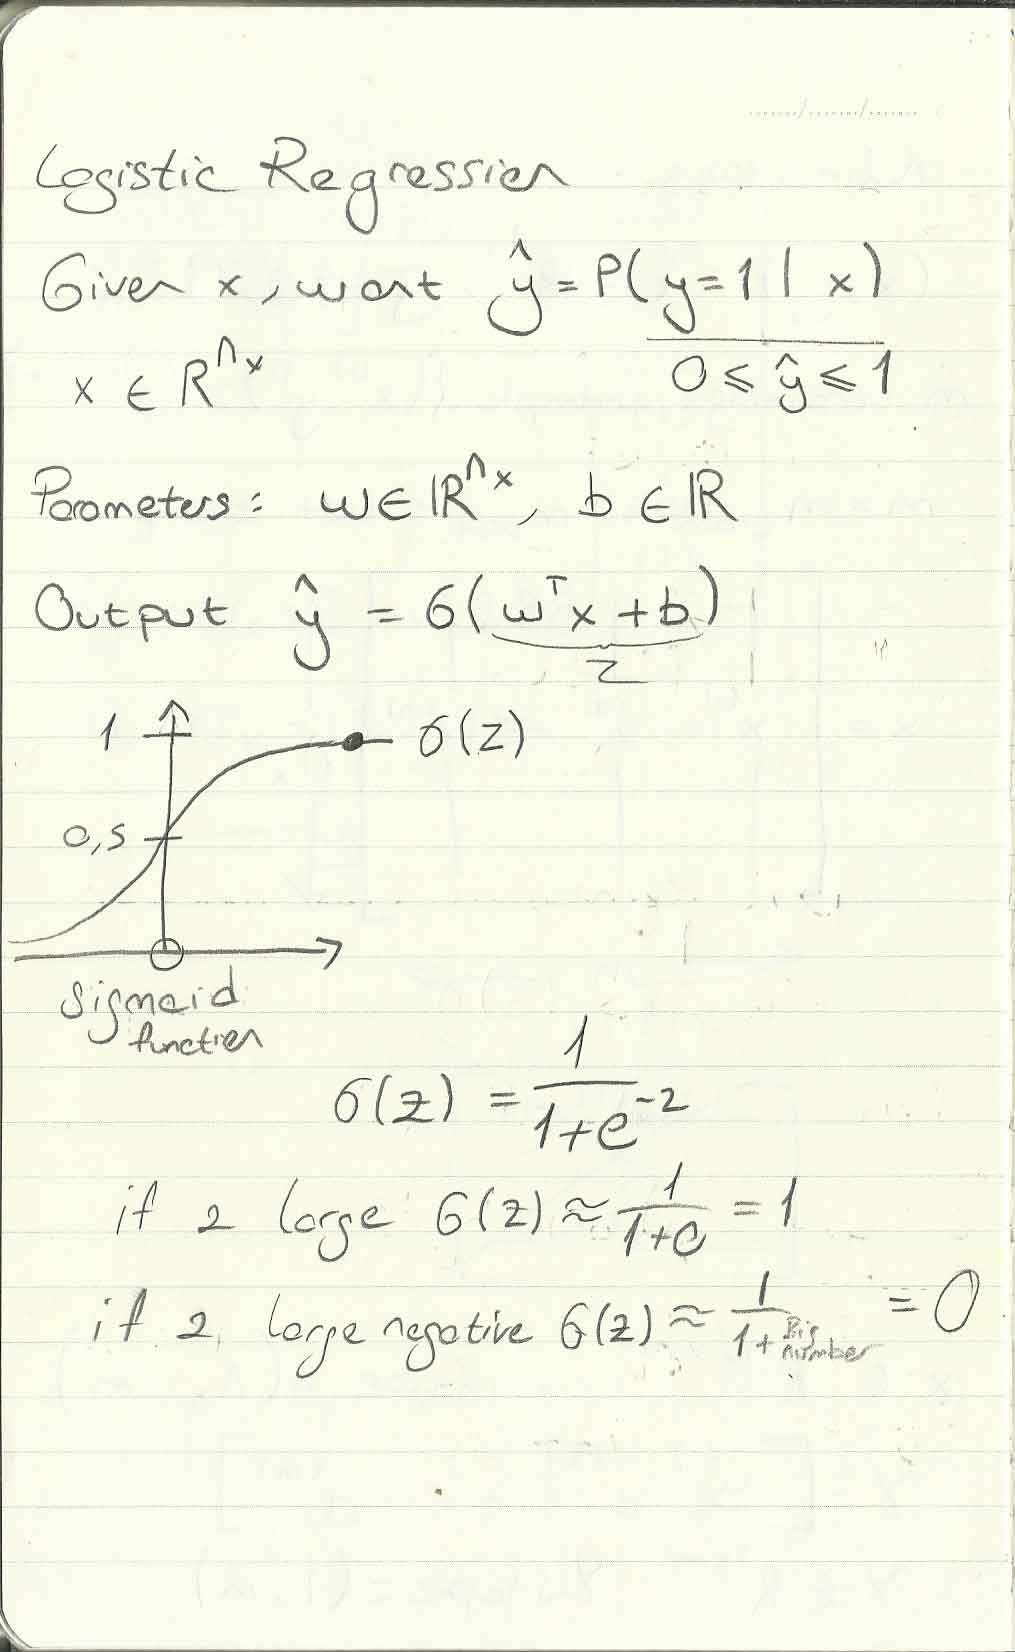 Logistic Regression
Given x, want ŷ = P(y=1 | x)
x ∈ R^nx
0 ≤ ŷ ≤ 1
Parameters: w ∈ ℝ^nx, b ∈ ℝ
Output ŷ = σ(wᵀx + b)
z
1
σ(z)
0,5
Sigmoid
function
σ(z) = 1/(1+e^-z)
if z large σ(z) ≈ 1/(1+0) = 1
if z large negative σ(z) ≈ 1/(1+Big number) = 0